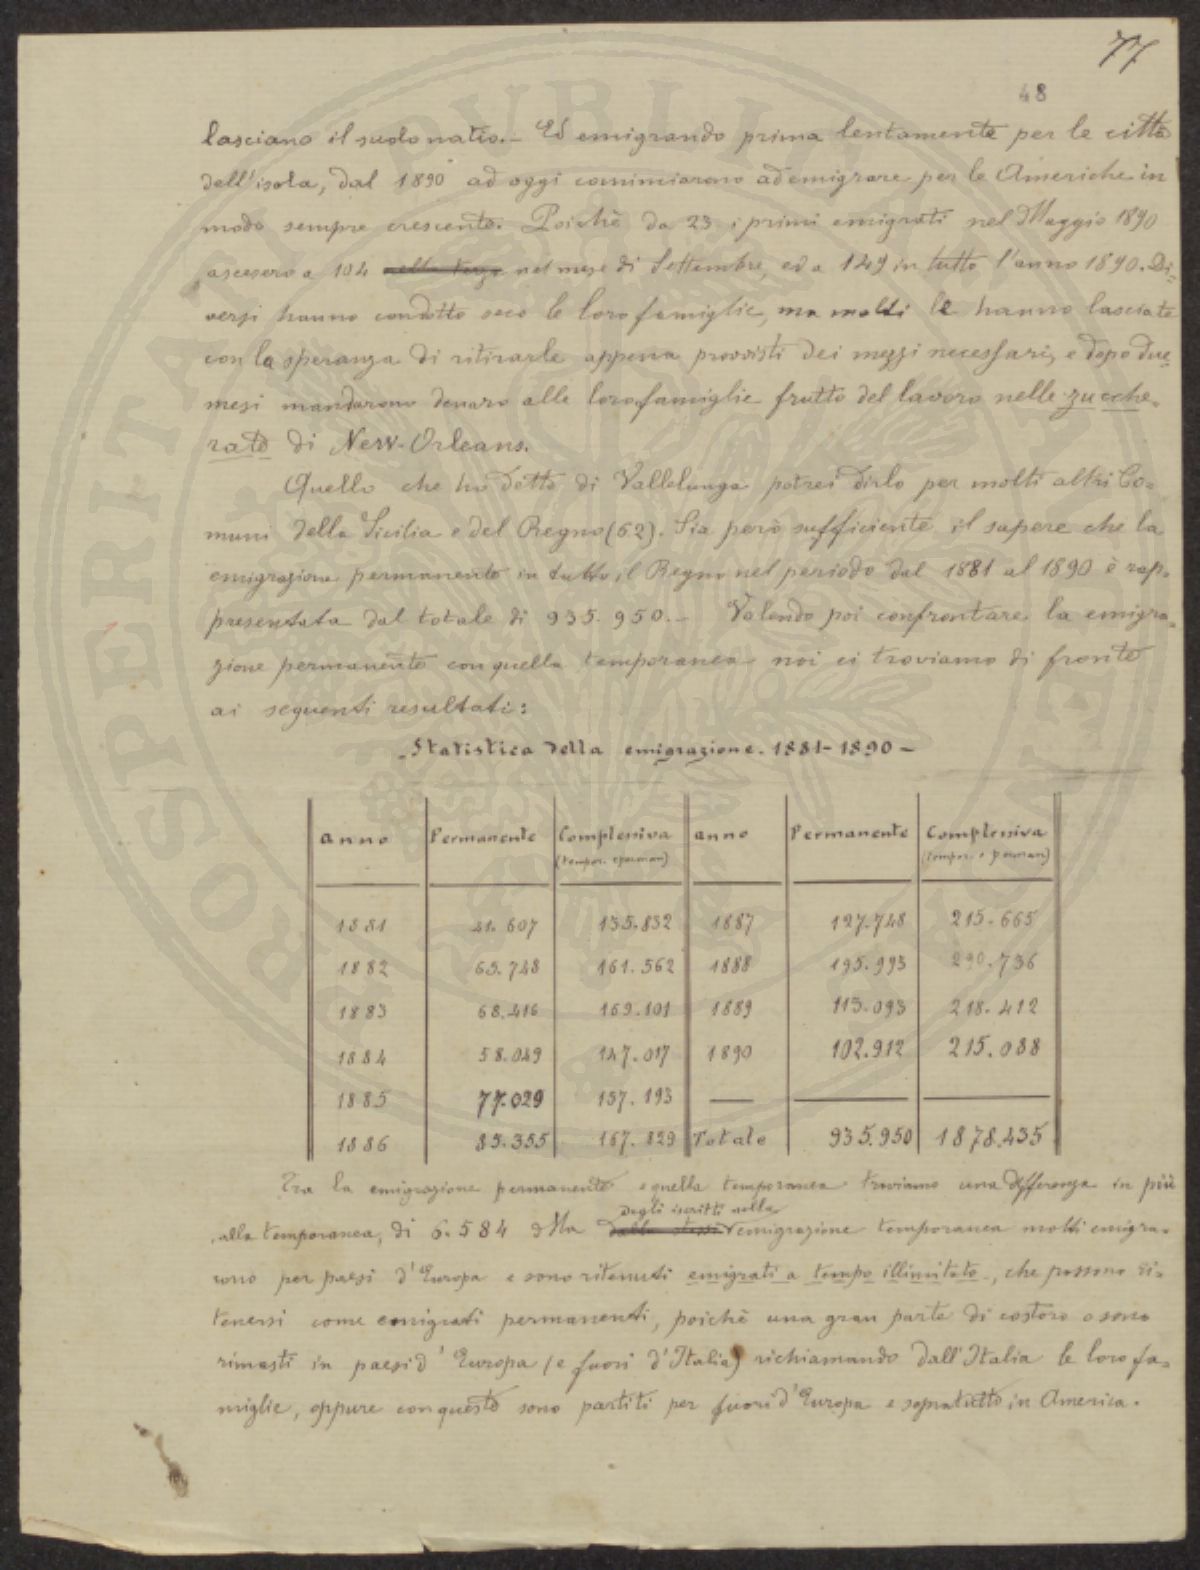 77
48
lasciano il suolo natio.- Ed emigrando prima lentamente per le città
dell'isola, dal 1890 ad oggi cominciarono ad emigrare per le Americhe in
modo sempre crescente. Poichè da 23 i primi emigrati nel Maggio 1890
ascesero a 104 nel mese di Settembre, ed a 149 in tutto l'anno 1890. Di-
versi hanno condotto seco le loro famiglie, ma molti le hanno lasciate
con la speranza di ritirarle appena provvisti dei mezzi necessari, e dopo due
mesi mandarono denaro alle loro famiglie frutto del lavoro nelle zucche-
rate di New-Orleans.
Quello che ho detto di Vallelunga potrei dirlo per molti altri Co-
muni della Sicilia e del Regno (62). Sia però sufficiente il sapere che la
emigrazione permanente in tutto il Regno nel periodo dal 1881 al 1890 è rap-
presentata dal totale di 935.950.- Volendo poi confrontare la emigra-
zione permanente con quella temporanea noi ci troviamo di fronte
ai seguenti resultati:
- Statistica della emigrazione. 1881-1890 -
anno Permanente Complessiva anno Permanente Complessiva
(tempor. e perman) (tempor. e perman)
1881 41.607 135.832 1887 127.748 215.665
1882 65.748 161.562 1888 195.993 290.736
1883 68.416 169.101 1889 113.093 218.412
1884 58.049 147.017 1890 102.912 215.088
1885 77.029 157.193
1886 85.355 167.829 Totale 935.950 1878.435
Tra la emigrazione permanente e quella temporanea troviamo una differenza in più
alla temporanea, di 6.584 Ma degli iscritti nella emigrazione temporanea molti emigra-
rono per paesi d'Europa e sono ritenuti emigrati a tempo illimitato, che possono ri-
tenersi come emigrati permanenti, poichè una gran parte di costoro o sono
rimasti in paesi d'Europa (e fuori d'Italia) richiamando dall'Italia le loro fa-
miglie, oppure con queste sono partiti per fuori d'Europa e sopratutto in America.
PROSPERITATI PVBLICAE